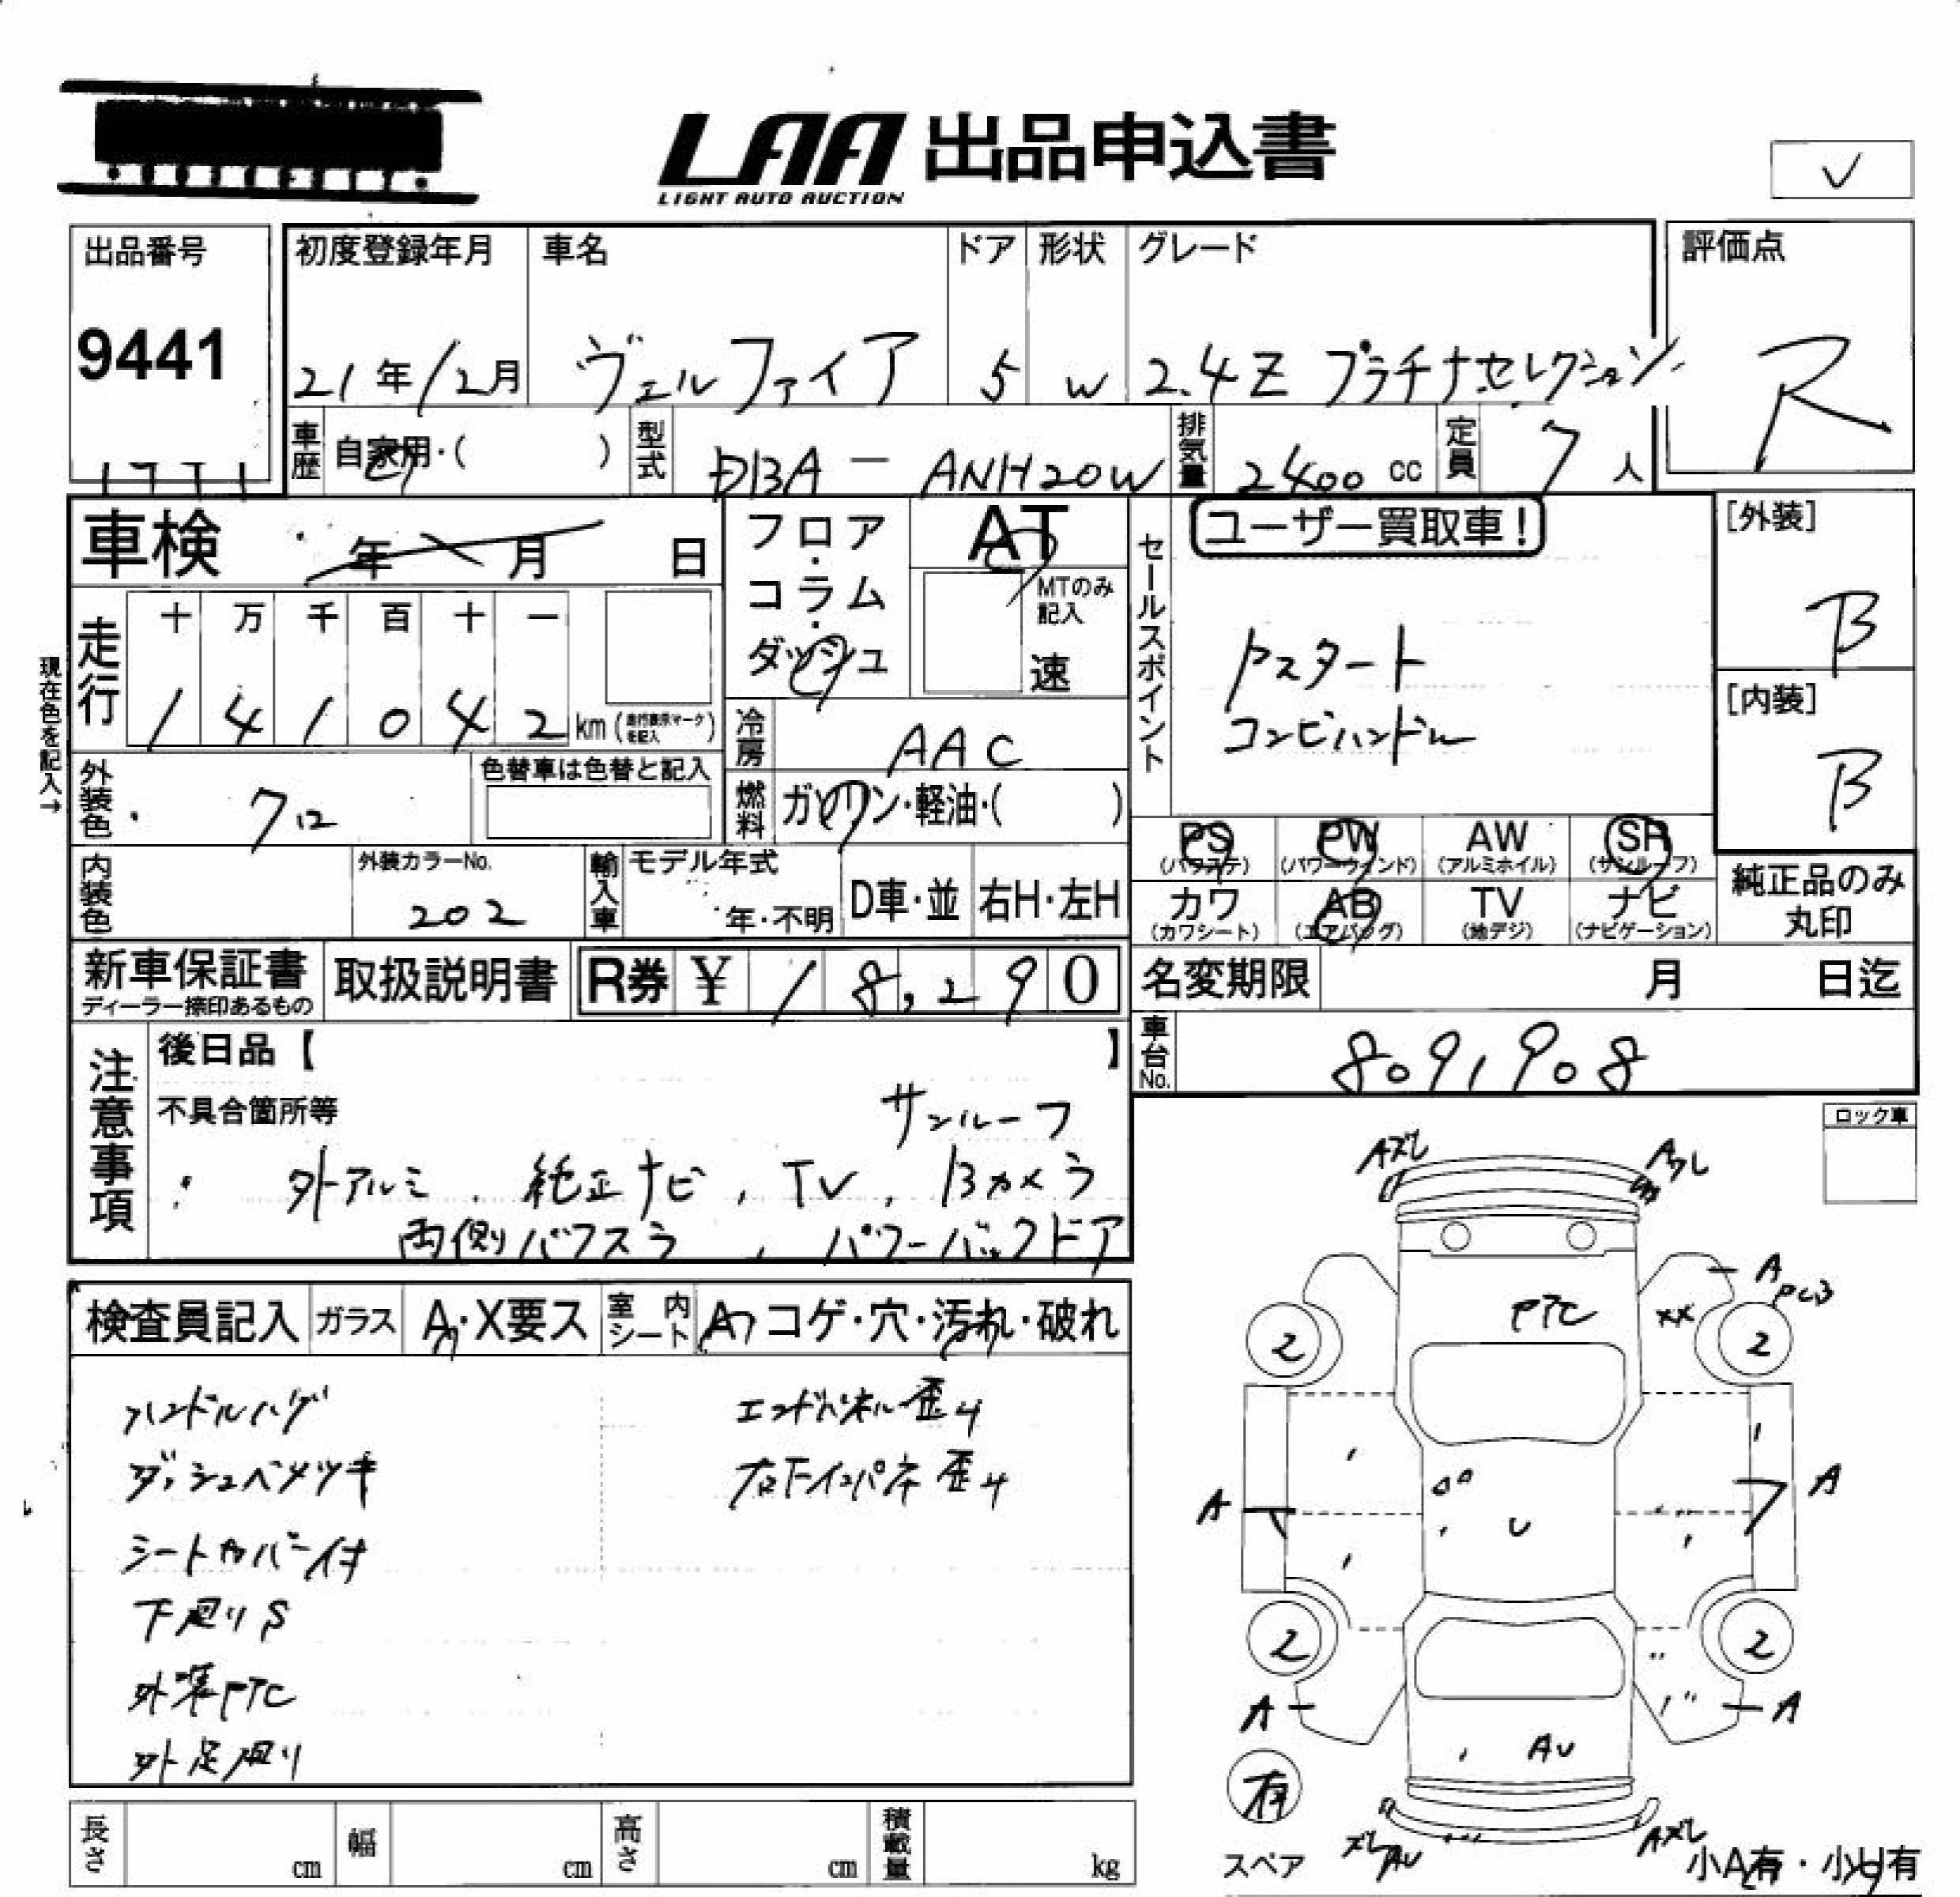 LAA 出品申込書
LIGHT AUTO AUCTION
出品番号
9441
初度登録年月
21年12月
車名
ヴェルファイア
ドア
5
形状
W
グレード
2.4Z プラチナセレクション
評価点
R
車歴
自家用・( )
型式
DBA－ANH20W
排気量
2400 cc
定員
7人
車検 年 月 日
フロア・コラム・ダッシュ
AT
MTのみ記入
速
セールスポイント
ユーザー買取車!
Pスタート
コンビハンドル
[外装]
B
[内装]
B
現在色を記入→
走行
十 万 千 百 十 一
1 4 1 0 4 2 km
冷房
AAC
燃料
ガソリン・軽油・( )
外装色
クロ
色替車は色替と記入
内装色
外装カラーNo.
202
輸入車
モデル年式
年・不明
D車・並
右H・左H
PS
(パワステ)
PW
(パワーウィンド)
AW
(アルミホイル)
SR
(サンルーフ)
カワ
(カワシート)
AB
(エアバッグ)
TV
(地デジ)
ナビ
(ナビゲーション)
純正品のみ
丸印
新車保証書
ディーラー捺印あるもの
取扱説明書
R券 ¥ 18,290
名変期限 月 日迄
車台No.
8091908
注意事項
後日品【 】
不具合箇所等
サンルーフ
外アルミ、純正ナビ、TV、Bカメラ
両側パワスラ、パワーバックドア
検査員記入
ガラス
A・X要ス
室内シート
A コゲ・穴・汚れ・破れ
ハンドルハゲ
ダッシュベタツキ
シートカバー付
下廻りS
外装PTC
外足廻り
エンドパネル歪み
右Fインパネ歪み
ロック車
AズレAズレ
A
PCB
PTC
XX
2
2
A
U
A
2
2
A
A
AU
有
スペア
ズレAU
AズレA
小A有・小U有
長さ cm
幅 cm
高さ cm
積載量 kg